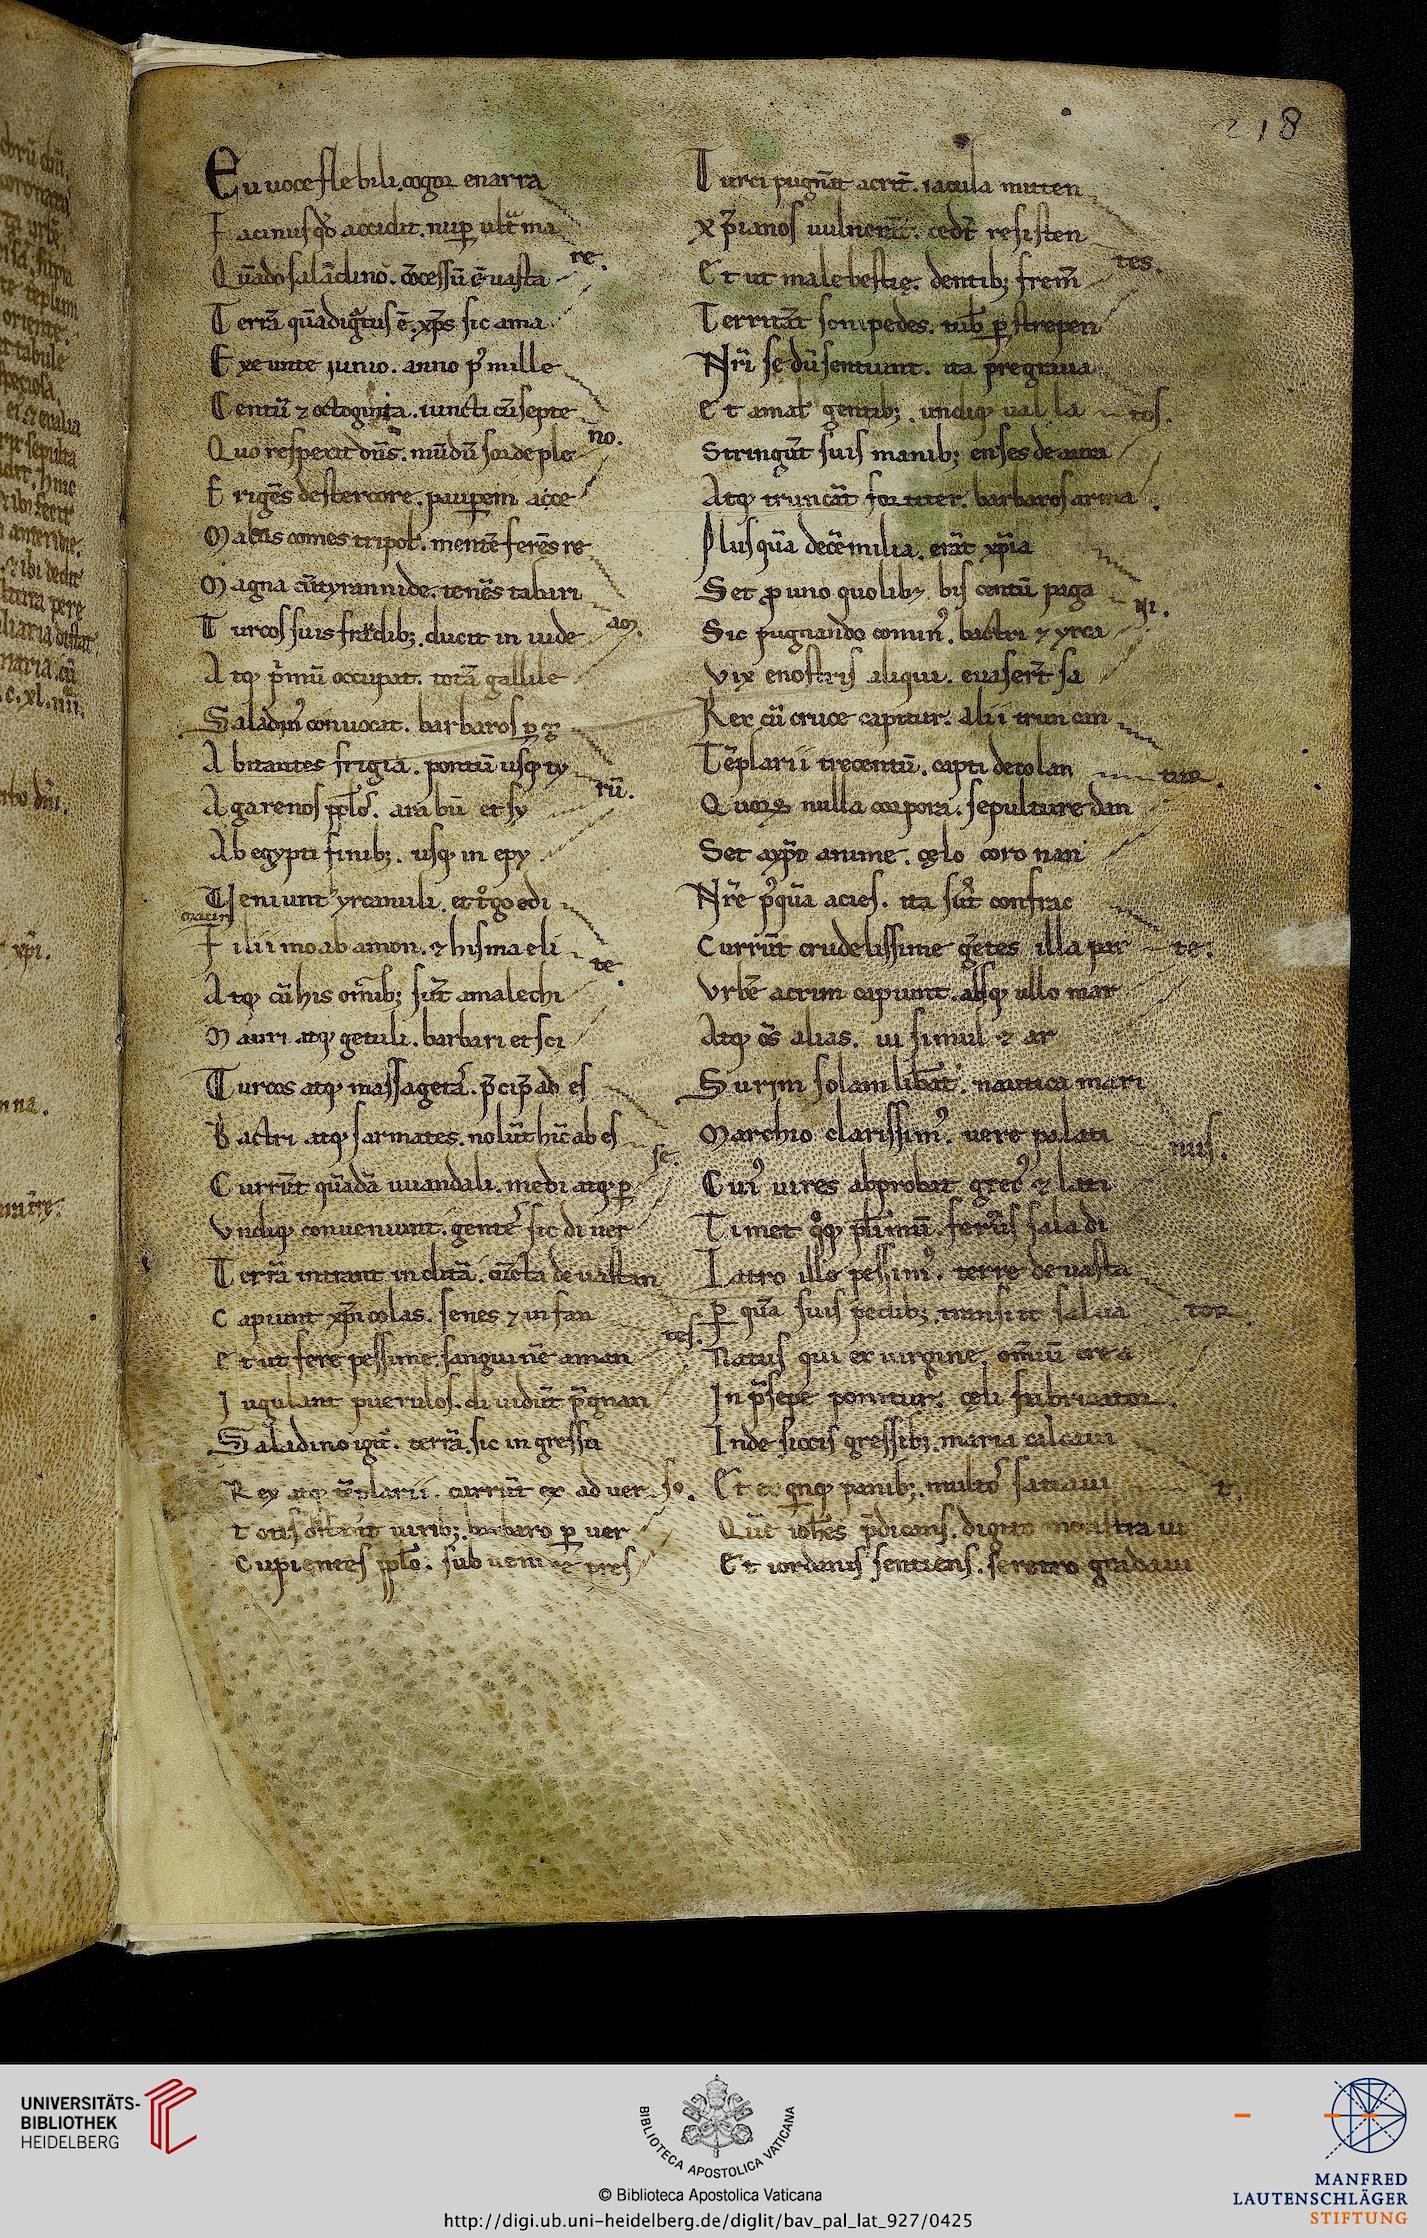 218
Eu uoce flebili. cogor enarra
Facinus qd̄ accidit. nup̄ ult̄ ma
re.
Quādo saladino. cōcessū ē uasta
Terrā quā dignatus ē. xp̄s sic ama
Exeunte junio. anno p̄ mille
Centū ⁊ octoginta. iuncti cū septe
no.
Quo respexit dn̄s. mūdū sorde ple
Erigēs de stercore. paup̄em ac ce
Malus comes tripol̄. mentē ferēs re
Magna cū tyrannide. tenēs taburi
am.
Turcos suis fraudib; ducit in iude
Atq; p̄mū occupat. totā galile
Saladin' conuocat. barbaros p̄ g
Abitantes frigiā. pontū usq; ty
rū.
Agarenos pp̄lōs. arabū et sy
Ab egypti finib;. usq; in epy
Ueniunt yrcanuli. et t̄go edi
Filii moab amon. ⁊ hismaeli
te.
Atq; cū his om̄ib; sūt amalechi
Mauri atq; getuli. barbari et sci
Turcos atq; massagetas. p̄cipit ad es
Bactri atq; sarmates. nolūt hīc ab es
se.
Currūt quādā uuandali. medi atq; p̄
Undiq; conueniunt. gentes sic di uer
Terrā intrant inclitā. cūcta deuastan
Capiunt xp̄icolas. senes ⁊ infan
tes.
Et ut fere pessime. sanguinē aman
Jugulant puerulos. diuidūt p̄gnan
Saladino igit̄. terrā sic ingressa
Rex atq; tēplarii. currūt ex aduer
so.
Totis uirib; barbaro p̄uer
Cupientes pp̄lo. subuenire pres
Turci pugnāt acrit̄. iacula mitten
Xp̄ianos uulnerāt. cedūt resisten
tes.
Et ut male bestie. dentib; frem̄
Territāt sonipedes. tub̄ p̄strepen
Nr̄i se dū sentiunt. ita pregraua
Et amat gentib;. undiq; ual la
tos.
Stringūt suis manib; enses deaura
Atq; truncāt fortiter. barbaros arma
Plus quā decē milia. erāt xp̄ia
Set p̄ uno quolib; bis centū paga
ni.
Sic pugnando comin'. bactri ⁊ yrca
Vix e nostris aliqui. euasert sa
Rex cū cruce capitur. alii truncan
Tēplarii trecentū. capti decolan
tur.
Quorū nulla corpora. sepulture dan
Set a xp̄o anime. celo coronan
Nr̄e p̄quā acies. ita sūt confrac
Currūt crudelissime gētes illa par
te.
Urbē acrim capiunt. absq; ullo mar
Atq; ōs alias. ui simul ⁊ ar
Surim solam lib̄at. nautica mari
Marchio clarissim'. uere palati
nus.
Cui' uires abprobat grec' ⁊ lati
Timet q̄q; plurimū. ferus saladi
Latro ille pessim'. terre deuasta
P̄ quā suis pedib; transiit salua
tor.
Natus qui ex uirgine. om̄iū crea
In p̄sepe ponitur. celi fabricator.
Inde siccis gressib; maria calcaui
Et ex quinq; panib;. multos satiaui
t.
Quē iohēs p̄dicans. digito monstraui
Et iordanis sentiens. se retro gradaui
UNIVERSITÄTS-
BIBLIOTHEK
HEIDELBERG
BIBLIOTECA APOSTOLICA VATICANA
© Biblioteca Apostolica Vaticana
http://digi.ub.uni-heidelberg.de/diglit/bav_pal_lat_927/0425
MANFRED
LAUTENSCHLÄGER
STIFTUNG